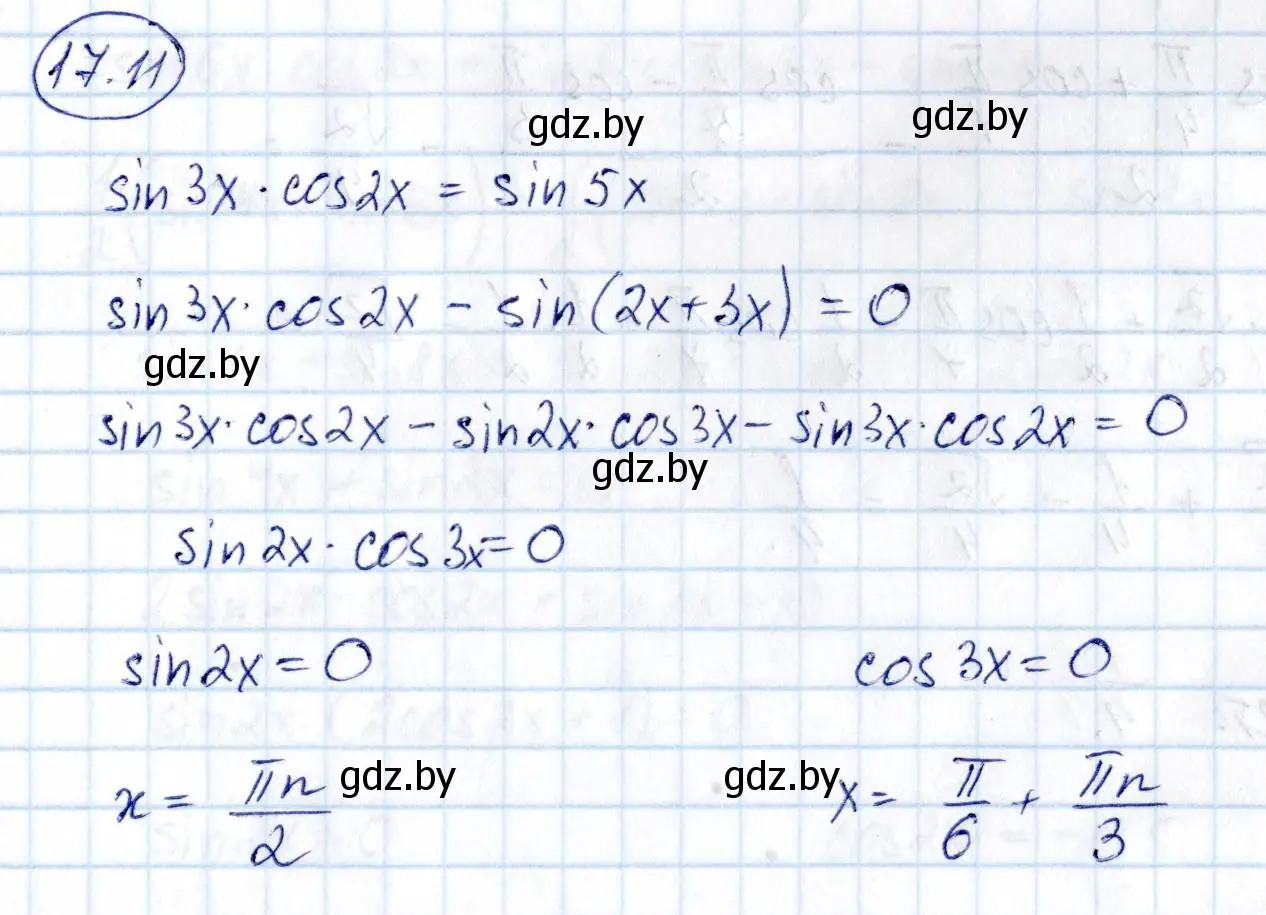 17.11
gdz.by gdz.by
sin 3x · cos2x = sin 5x
sin 3x · cos 2x - sin(2x+3x) = 0
gdz.by
sin 3x · cos 2x - sin 2x · cos 3x - sin 3x · cos 2x = 0
gdz.by
sin 2x · cos 3x = 0
sin 2x = 0 cos 3x = 0
x = πn/2 gdz.by gdz.by x = π/6 + πn/3